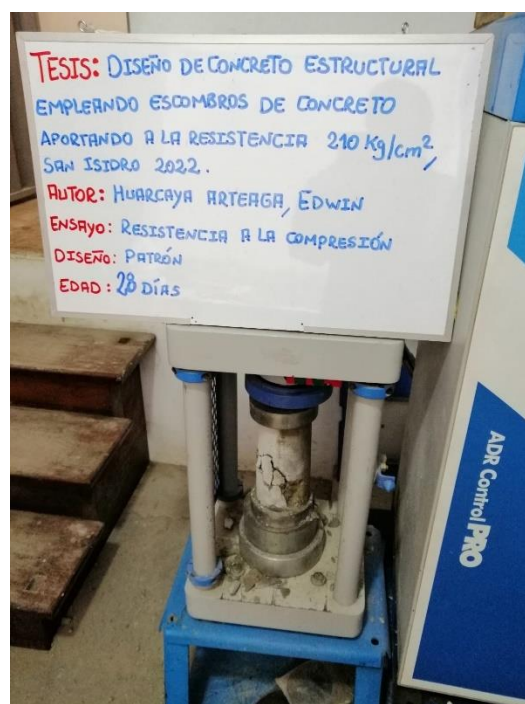 TESIS: DISEÑO DE CONCRETO ESTRUCTURAL
EMPLEANDO ESCOMBROS DE CONCRETO
APORTANDO A LA RESISTENCIA 210 Kg/cm²,
SAN ISIDRO 2022.
AUTOR: HUARCAYA ARTEAGA, EDWIN
ENSAYO: RESISTENCIA A LA COMPRESIÓN
DISEÑO: PATRÓN
EDAD: 28 DÍAS
ADR Control PRO